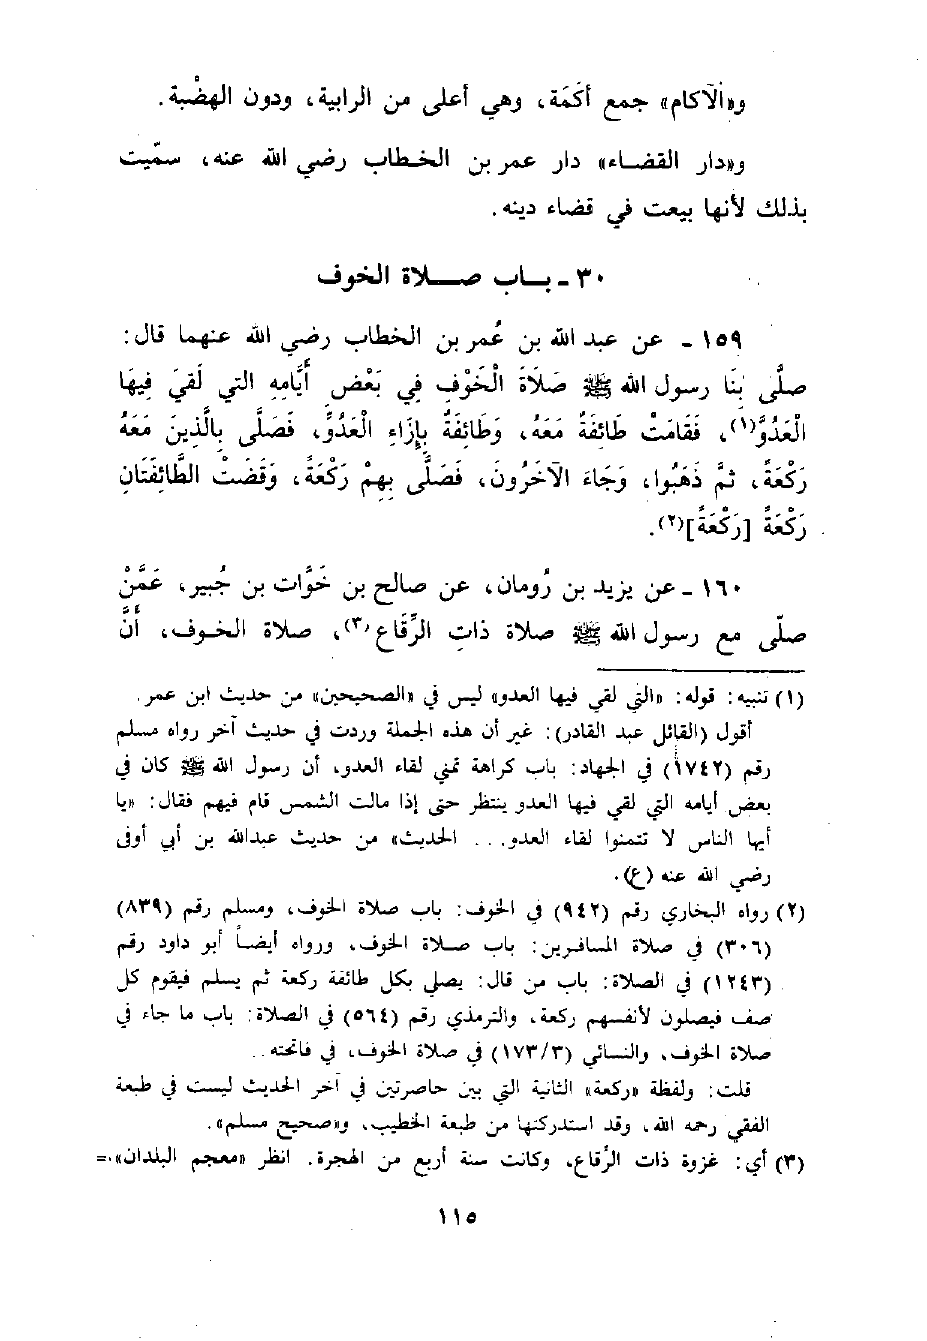 و«الآكام» جمع أكَمَة، وهي أعلى من الرابية، ودون الهضْبة.
و«دار القضاء» دار عمر بن الخطاب رضي الله عنه، سمّيت
بذلك لأنها بيعت في قضاء دينه.
٣٠ - باب صلاة الخوف
١٥٩ - عن عبد الله بن عُمر بن الخطاب رضي الله عنهما قال:
صلَّى بنَا رسول الله ﷺ صَلَاةَ الْخَوْف فِي بَعْض أَيَّامِهِ التي لَقيَ فِيهَا
الْعَدُوَّ(١)، فَقَامَتْ طَائفَةٌ مَعَهُ، وَطَائِفَةٌ بِإزَاءِ الْعَدُوِّ، فَصَلَّى بِالَّذِينَ مَعَهُ
رَكْعَةً، ثمَّ ذَهَبُوا، وَجَاءَ الآخَرُونَ، فَصَلَّى بِهِمْ رَكْعَةً، وَقَضَتْ الطَّائِفَتَانِ
رَكْعَةً [رَكْعَةً](٢).
١٦٠ - عن يزيد بن رُومان، عن صالح بن خَوَّات بن جُبير، عَمَّنْ
صلّى مع رسول الله ﷺ صلاة ذاتِ الرِّقَاع(٣)، صلاة الخوف، أنَّ
(١) تنبيه: قوله: «التي لقي فيها العدو» ليس في «الصحيحين» من حديث ابن عمر.
أقول (القائل عبد القادر): غير أن هذه الجملة وردت في حديث آخر رواه مسلم
رقم (١٧٤٢) في الجهاد: باب كراهة تمني لقاء العدو، أن رسول الله ﷺ كان في
بعض أيامه التي لقي فيها العدو ينتظر حتى إذا مالت الشمس قام فيهم فقال: «يا
أيها الناس لا تتمنوا لقاء العدو... الحديث» من حديث عبدالله بن أبي أوفى
رضي الله عنه (ع).
(٢) رواه البخاري رقم (٩٤٢) في الخوف: باب صلاة الخوف، ومسلم رقم (٨٣٩)
(٣٠٦) في صلاة المسافرين: باب صلاة الخوف، ورواه أيضاً أبو داود رقم
(١٢٤٣) في الصلاة: باب من قال: يصلي بكل طائفة ركعة ثم يسلم فيقوم كل
صف فيصلون لأنفسهم ركعة، والترمذي رقم (٥٦٤) في الصلاة: باب ما جاء في
صلاة الخوف، والنسائي (١٧٣/٣) في صلاة الخوف، في فاتحته..
قلت: ولفظة «ركعة» الثانية التي بين حاصرتين في آخر الحديث ليست في طبعة
الفقي رحمه الله، وقد استدركتها من طبعة الخطيب، و«صحيح مسلم».
(٣) أي: غزوة ذات الرِّقاع، وكانت سنة أربع من الهجرة. انظر «معجم البلدان». =
١١٥